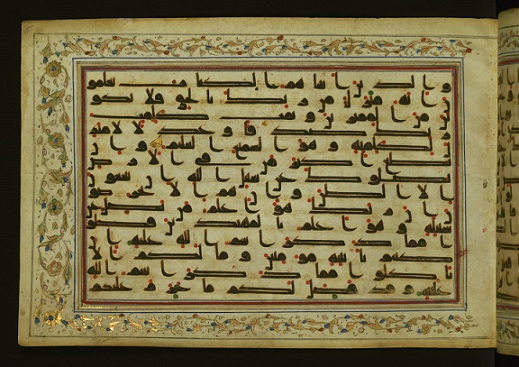 و الذين اتينهم الكتب يعلمو
ن انه منزل من ربك بالحق فلا تكو
نن من الممترين و تمت كلمت
ربك صدقا و عدلا لا مبدل
لكلمته و هو السميع العليم و ا
ن تطع اكثر من في الارض
يضلوك عن سبيل الله ان يتبعو
ن الا الظن و ان هم الا يخرصو
ن ان ربك هو اعلم من يضل عن
سبيله و هو اعلم بالمهتدين فكلو
ا مما ذكر اسم الله عليه ان
كنتم بايته مومنين و ما لكم الا
تاكلوا مما ذكر اسم الله
عليه و قد فصل لكم ما حرم عليكم